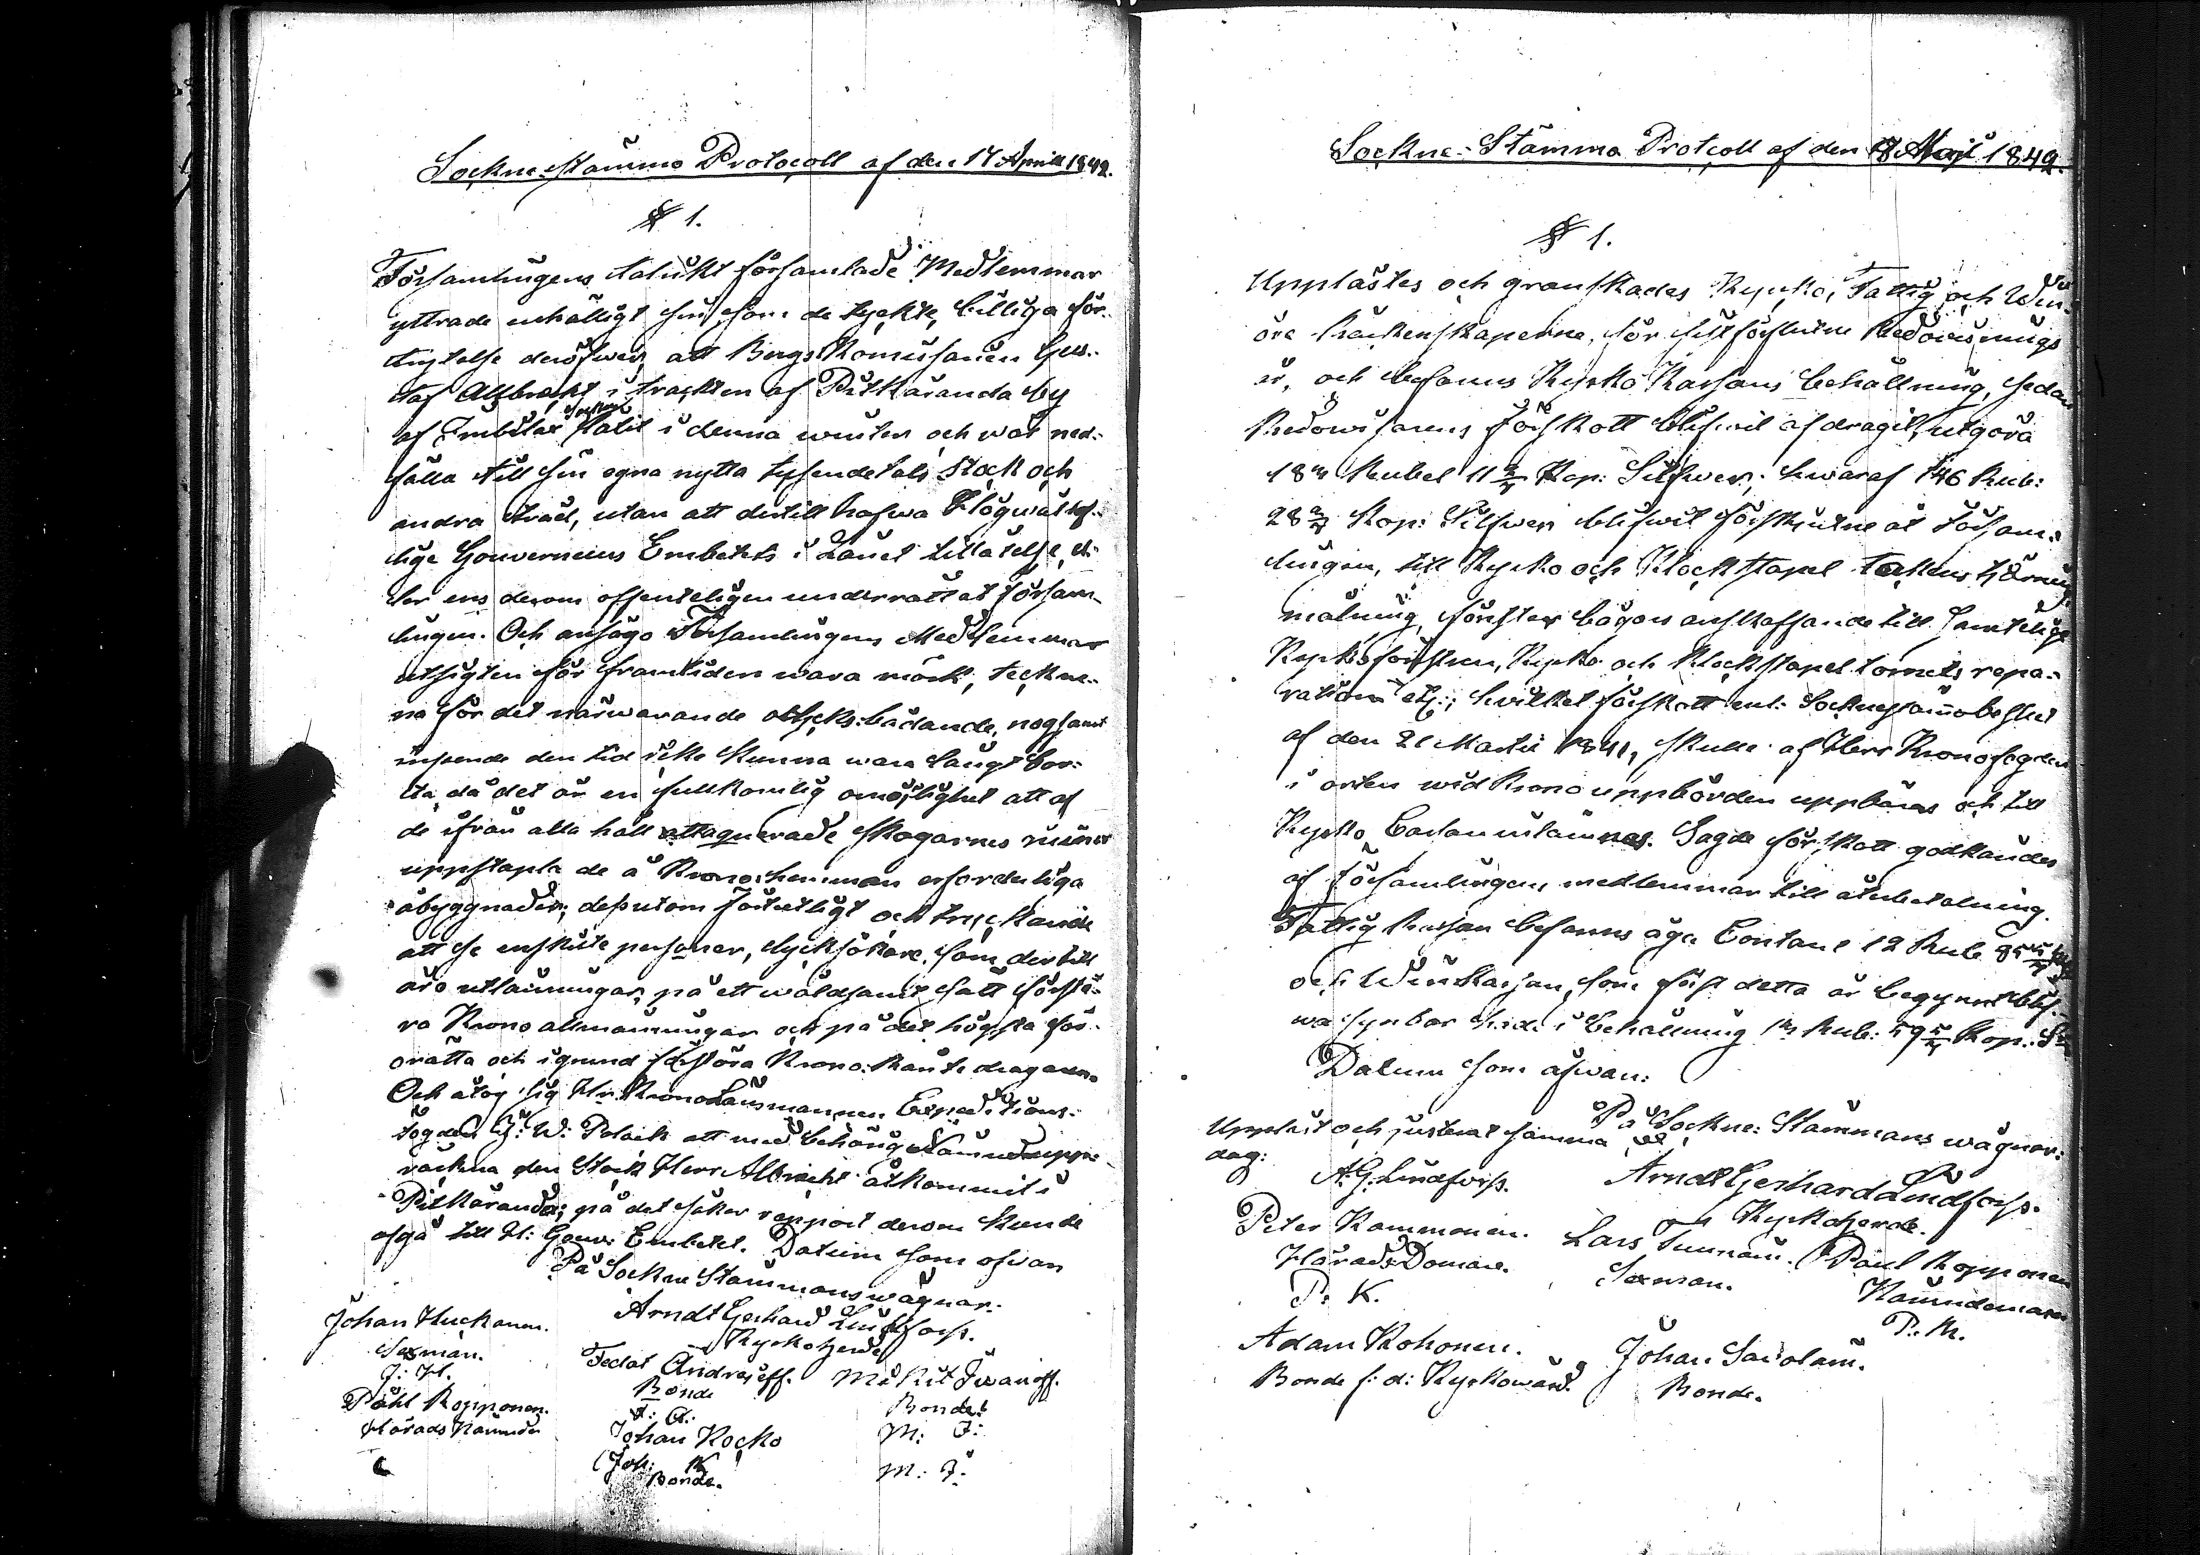 Sockne-stämmo Protocoll af den 17 Aprill 1842.
§ 1.
Församlingens talrikt församlade Medlemmar
yttrade enhälligt sin, som de tyckte, billiga för-
trytelse deröfwer, att Bergs Komissarien Gus-
taf Albrecht i trackten af Pitkäranda by
af Imbilax Socken låtit i denna winter och wår ned-
fälla till sin egna nytta tusendetals stock och
andra träd, utan att dertill hafwa Högwälbor-
lige Gouverneurs Embetets i Länet tillåtelse, el-
ler ens derom offenteligen underrättat församl-
lingen. Och ansågo Församlingens Medlemmar
utsigten för framtiden wara mörk, teckne-
na för det närwarande olycksbådande, nogsamt
inseende den tid icke kunna wara långt bor-
ta, då det är en fullkomlig omöjlighet att af
de ifrån alla håll attaquerade skogarnes ruiner
uppstapla de å Krono hemman erforderliga
åbyggnader; desutom förtretligt och tryckande
att se enskilte personer, lycksökare, som der till
äro utlänningar, på ett wåldsamt sätt förstö-
ra Krono allmänningar och på det högsta för-
orätta och i grund förstöra Krono: skattedragaren.
Och åtog sig Hr. Kronolänsmannen Expeditions-
fogden J: W: Polack att med behörig Nämnd upp-
räckna den Stock Herr Albrecht åtkommit i
Pitkäranda; på det säker rapport derom kunde
afgå till H: Gouv: Embetet. Datum som ofwan
På Sockne Stämmans wägnar:
Arndt Gerhard Lindforss.
Kyrkoherde
Johan Huckanen.
Sexman.
J: H.
Fedat Andrejeff.
Bonde
F: A:
Mikit Iwanoff.
Bonde
M: I:
Påhl Ropponen.
Härads Nämnde
Johan Kocko
Joh: K
Bonde.
M: I:
Sockne-Stämma Protcoll af den 8 Maji 1842.
§ 1.
Upplästes och granskades Kyrko, Fattig och Win-
öre Räckenskaperne, för sist förflutne Redowisnings
år, och befanns Kyrko Kassans behållning, sedan
Redowisarens Förskott blifwit afdragit, utgöra
18 Rubel 11 3/7 Kop: Silfwer; hwaraf 146 Rub:
28 4/7 Kop: Silfwer blifwit förskjutne åt Församl-
lingen, till Kyrko och Klockstapel takens tjärning
målning, fönster bågars anskaffande till samtelige
Kyrkofönstren, Kyrko och Klockstapel tornets repa-
ration etc:, hwilket förskott enl: Sockne stämobeslut
af den 21 Martii 1841, skulle af Herr Kronofogden
i orten wid Krono uppbörden uppbäras och till
Kyrko Cassan inlämnas. Sagde förskott godkändes
af församlingens medlemmar till återbetalning.
Fattig kassan befanns äga Contant 12 Rub.
och Winkassan, som först detta år begynt blif-
wa synbar hade i behållning Rub: Kop: S
Datum som ofwan:
På Sockne: Stämmans wägnar:
Uppläst och justerat samma
dag:
Arndt Gerhard Lindforss.
Kyrkoherde.
A: G: Lindforss.
Peter Kammonen.
Härads Domare.
P: K.
Lars Tunnani.
Sexman.
Paul Ropponen
Nämndeman
P. R.
Adam Kohonen.
Bonde f: d: Kyrkowärd.
Johan Sawolain.
Bonde.